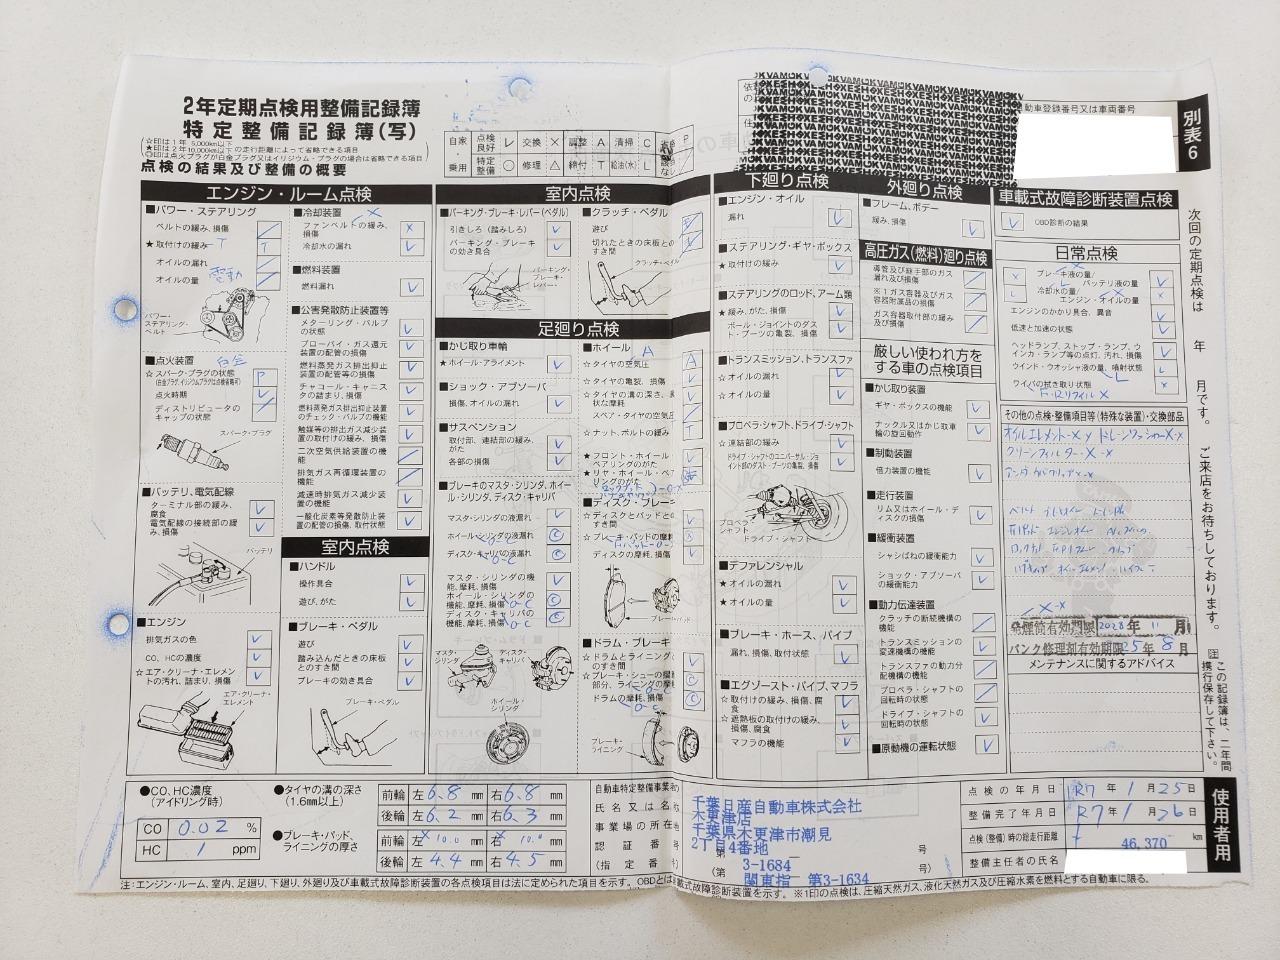 2年定期点検用整備記録簿
特定整備記録簿(写)
☆印は1年 5,000km以下
★印は2年10,000km以下 の走行距離によって省略できる項目
点検の結果及び整備の概要
自家・乗用
点検良好 レ 交換 × 調整 A 清掃 C
特定整備 ○ 修理 △ 締付 T 給油(水) L
自動車登録番号又は車両番号
別表6
エンジン・ルーム点検
■パワー・ステアリング
ベルトの緩み、損傷
★取付けの緩み T
オイルの漏れ
オイルの量
電動
パワー・ステアリング・ベルト
■点火装置 白金
☆スパーク・プラグの状態 P
(白金プラグ、イリジウムプラグは点検省略可)
点火時期
ディストリビュータのキャップの状態
スパーク・プラグ
■バッテリ、電気配線
ターミナル部の緩み、腐食
電気配線の接続部の緩み、損傷
バッテリ
■エンジン
排気ガスの色
CO、HCの濃度
☆エア・クリーナ・エレメントの汚れ、詰まり、損傷
エア・クリーナ・エレメント
■冷却装置
ファンベルトの緩み、損傷 ×
冷却水の漏れ
■燃料装置
燃料漏れ
■公害発散防止装置等
メターリング・バルブの状態
ブローバイ・ガス還元装置の配管の損傷
燃料蒸発ガス排出抑止装置の配管等の損傷
チャコール・キャニスタの詰まり、損傷
燃料蒸発ガス排出抑止装置のチェック・バルブの機能
触媒等の排出ガス減少装置の取付けの緩み、損傷
二次空気供給装置の機能
排気ガス再循環装置の機能
減速時排気ガス減少装置の機能
一酸化炭素等発散防止装置の配管の損傷、取付状態
室内点検
■ハンドル
操作具合
遊び、がた
■ブレーキ・ペダル
遊び
踏み込んだときの床板とのすき間
ブレーキの効き具合
ブレーキ・ペダル
室内点検
■パーキング・ブレーキ・レバー(ペダル)
引きしろ(踏みしろ)
パーキング・ブレーキの効き具合
パーキング・ブレーキ・レバー
■クラッチ・ペダル
切れたときの床板とのすき間
クラッチ・ペダル
足廻り点検
■かじ取り車輪
★ホイール・アライメント
■ショック・アブソーバ
損傷、オイルの漏れ
■サスペンション
取付部、連結部の緩み、がた
各部の損傷
■ブレーキのマスタ・シリンダ、ホイール・シリンダ、ディスク・キャリパ
マスタ・シリンダの液漏れ
ホイール・シリンダの液漏れ
ディスク・キャリパの液漏れ
マスタ・シリンダの機能、摩耗、損傷
ホイール・シリンダの機能、摩耗、損傷
ディスク・キャリパの機能、摩耗、損傷
マスタ・シリンダ
ディスク・キャリパ
ホイール・シリンダ
■ホイール A
☆タイヤの空気圧
☆タイヤの亀裂、損傷
☆タイヤの溝の深さ、
状な摩耗
スペア・タイヤの空気圧
☆ナット、ボルトの緩み
★フロント・ホイール・ベアリングのがた
★リヤ・ホイール・ベアリングのがた
■ディスク・ブレーキ
☆ディスクとパッドとのすき間
☆ブレーキ・パッドの摩耗
ディスクの摩耗、損傷
ブレーキ・パッド
■ドラム・ブレーキ
☆ドラムとライニングとのすき間
☆ブレーキ・シューの摺動部分、ライニングの摩耗
ドラムの摩耗、損傷
ブレーキ・ライニング
下廻り点検
■エンジン・オイル
漏れ
■ステアリング・ギヤ・ボックス
★取付けの緩み
■ステアリングのロッド、アーム類
★緩み、がた、損傷
ボール・ジョイントのダスト・ブーツの亀裂、損傷
■トランスミッション、トランスファ
☆オイルの漏れ
☆オイルの量
■プロペラ・シャフト、ドライブ・シャフト
☆連結部の緩み
ドライブ・シャフトのユニバーサル・ジョイント部のダスト・ブーツの亀裂、損傷
プロペラ・シャフト
ドライブ・シャフト
■デファレンシャル
★オイルの漏れ
★オイルの量
■ブレーキ・ホース、パイプ
漏れ、損傷、取付状態
■エグゾースト・パイプ、マフラ
☆取付けの緩み、損傷、腐食
☆遮熱板の取付けの緩み、損傷、腐食
マフラの機能
外廻り点検
■フレーム、ボデー
緩み、損傷
高圧ガス(燃料)廻り点検
導管及び継手部のガス漏れ及び損傷
※1ガス容器及びガス容器附属品の損傷
ガス容器取付部の緩み及び損傷
厳しい使われ方をする車の点検項目
■かじ取り装置
ギヤ・ボックスの機能
ナックル又はかじ取車輪の旋回動作
■制動装置
倍力装置の機能
■走行装置
リム又はホイール・ディスクの損傷
■緩衝装置
シャシばねの緩衝能力
ショック・アブソーバの緩衝能力
■動力伝達装置
クラッチの断続機構の機能
トランスミッションの変速機構の機能
トランスファの動力分配機構の機能
プロペラ・シャフトの回転時の状態
ドライブ・シャフトの回転時の状態
■原動機の運転状態
車載式故障診断装置点検
OBD診断の結果
日常点検
ブレーキ液の量/バッテリ液の量
冷却水の量/エンジン・オイルの量
エンジンのかかり具合、異音
低速と加速の状態
ヘッドランプ、ストップ・ランプ、ウインカ・ランプ等の点灯、汚れ、損傷
ウインド・ウオッシャ液の量、噴射状態
ワイパの拭き取り状態
その他の点検・整備項目等(特殊な装置)・交換部品
オイルエレメント-× ドレンワッシャー×-×
クリーンフィルター×-×
発煙筒有効期限 2028年 11月
パンク修理剤有効期限 25年 8月
メンテナンスに関するアドバイス
次回の定期点検は 年 月です。 ご来店をお待ちしております。
注 この記録簿は、二年間携行保存して下さい。
使用者用
●CO、HC濃度(アイドリング時)
CO 0.02 %
HC 1 ppm
●タイヤの溝の深さ(1.6mm以上)
前輪 左 6.8 mm 右 6.8 mm
後輪 左 6.2 mm 右 6.3 mm
●ブレーキ・パッド、ライニングの厚さ
前輪 左 ×10.0 mm 右 × 10.0 mm
後輪 左 4.4 mm 右 4.5 mm
自動車特定整備事業者の
氏名又は名称
事業場の所在地
認証番号
(指定番号
千葉日産自動車株式会社
木更津店
千葉県木更津市潮見
2丁目4番地
第 3-1684 号
(第 関東指 第3-1634 号)
点検の年月日 R7年 1月25日
整備完了年月日 R7年 1月26日
点検(整備)時の総走行距離 46,370 km
整備主任者の氏名
注:エンジン・ルーム、室内、足廻り、下廻り、外廻り及び車載式故障診断装置の各点検項目は法に定められた項目を示す。OBDとは車載式故障診断装置を示す。※1印の点検は、圧縮天然ガス、液化天然ガス及び圧縮水素を燃料とする自動車に限る。